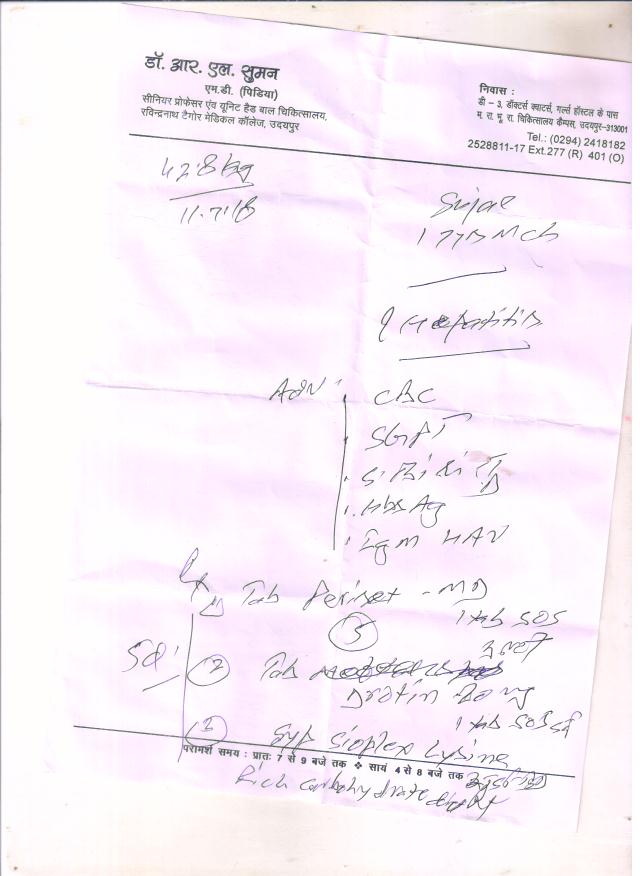 डॉ. आर. एल. सुमन
एम.डी. (पिडिया)
सीनियर प्रोफेसर एंव यूनिट हैड बाल चिकित्सालय,
रविन्द्रनाथ टैगोर मेडिकल कॉलेज, उदयपुर
निवास :
डी – ३, डॉक्टर्स क्वाटर्स, गर्ल्स हॉस्टल के पास
म. रा. भू. रा. चिकित्सालय कैम्पस, उदयपुर–313001
Tel.: (0294) 2418182
2528811-17 Ext.277 (R) 401 (O)
42.8 kg
11.7.18
? Hepatitis
Adv
CBC
SGPT
HbsAg
Igm HAV
Rx
1 Tab Perinet - MD
1 tab SOS
5
2 Tab
Drotin
1 tab SOS
3 Syp Sioplex Lysine
परामर्श समय : प्रातः 7 से 9 बजे तक ❖ सायं 4 से 8 बजे तक
Rich carbohydrate